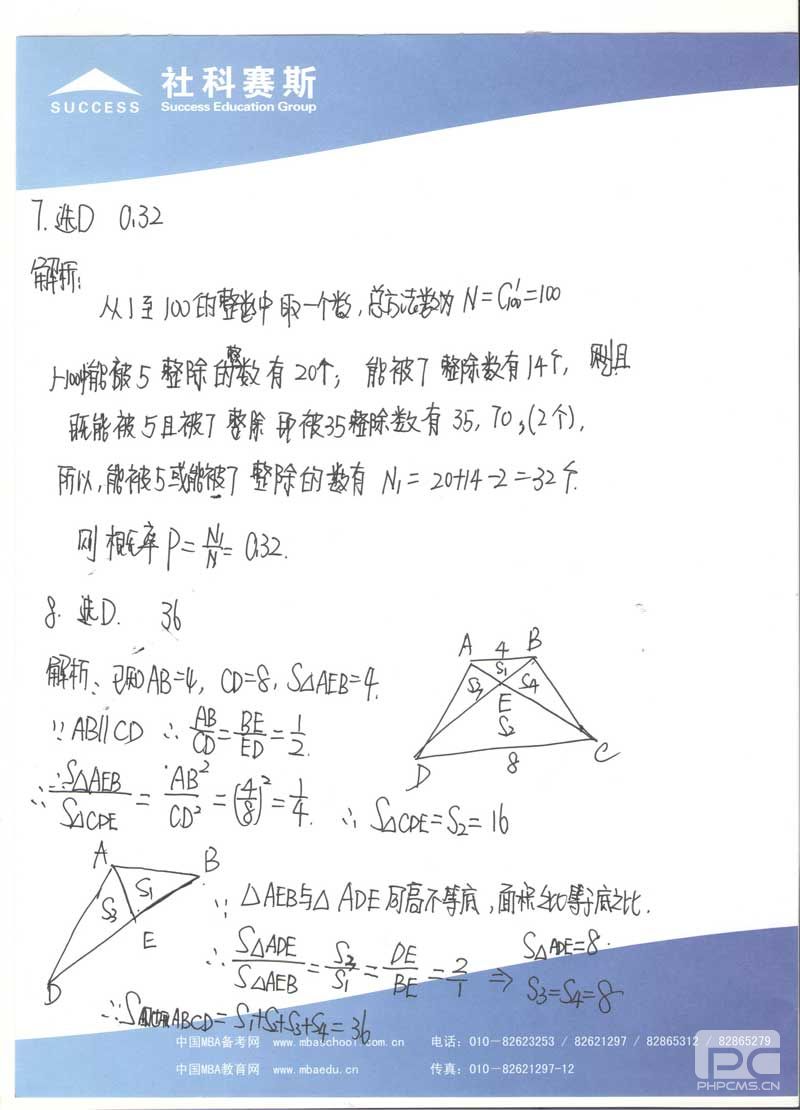 社科赛斯
SUCCESS
Success Education Group
7. 选D 0.32
解析:
从1至100的整数中取一个数,总方法数为 N=C₁₀₀¹=100
1-100中能被5整除的整数有20个; 能被7整除数有14个, 则且
既能被5且被7整除即被35整除数有35, 70,(2个),
所以,能被5或能被7整除的数有 N₁=20+14-2=32个.
则概率P=N₁/N=0.32.
8. 选D. 36
解析、已知AB=4, CD=8, S△AEB=4.
A 4 B
S₁
S₃ S₄
E
S₂
D 8 C
∵AB//CD ∴AB/CD=BE/ED=1/2.
∴S△AEB/S△CDE=AB²/CD²=(4/8)²=1/4. ∴S△CDE=S₂=16
A B
S₁
S₃
E
D
∵△AEB与△ADE同高不等底,面积之比等于底之比.
∴S△ADE/S△AEB=S₃/S₁=DE/BE=2/1 ⇒ S△ADE=8.
S₃=S₄=8
∴S四边形ABCD=S₁+S₂+S₃+S₄=36
中国MBA备考网 www.mbaschool.com.cn 电话:010-82623253 / 82621297 / 82865312 / 82865279
中国MBA教育网 www.mbaedu.cn 传真:010-82621297-12
PC
PHPCMS.CN